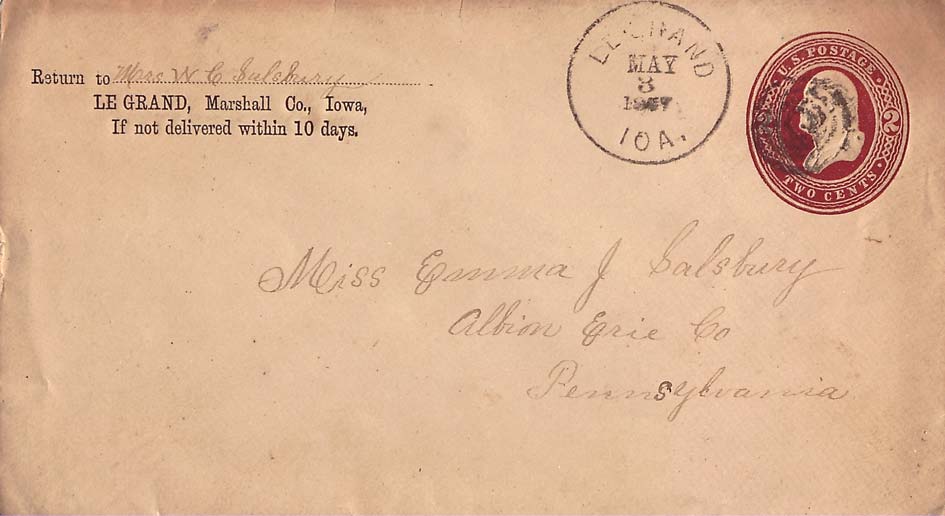 Return to Mrs W. C. Salsbury
LE GRAND, Marshall Co., Iowa,
If not delivered within 10 days.
LE GRAND
MAY
3
IOA.
U.S. POSTAGE
2 2
TWO CENTS
Miss Emma J Salsbury
Albion Erie Co
Pennsylvania